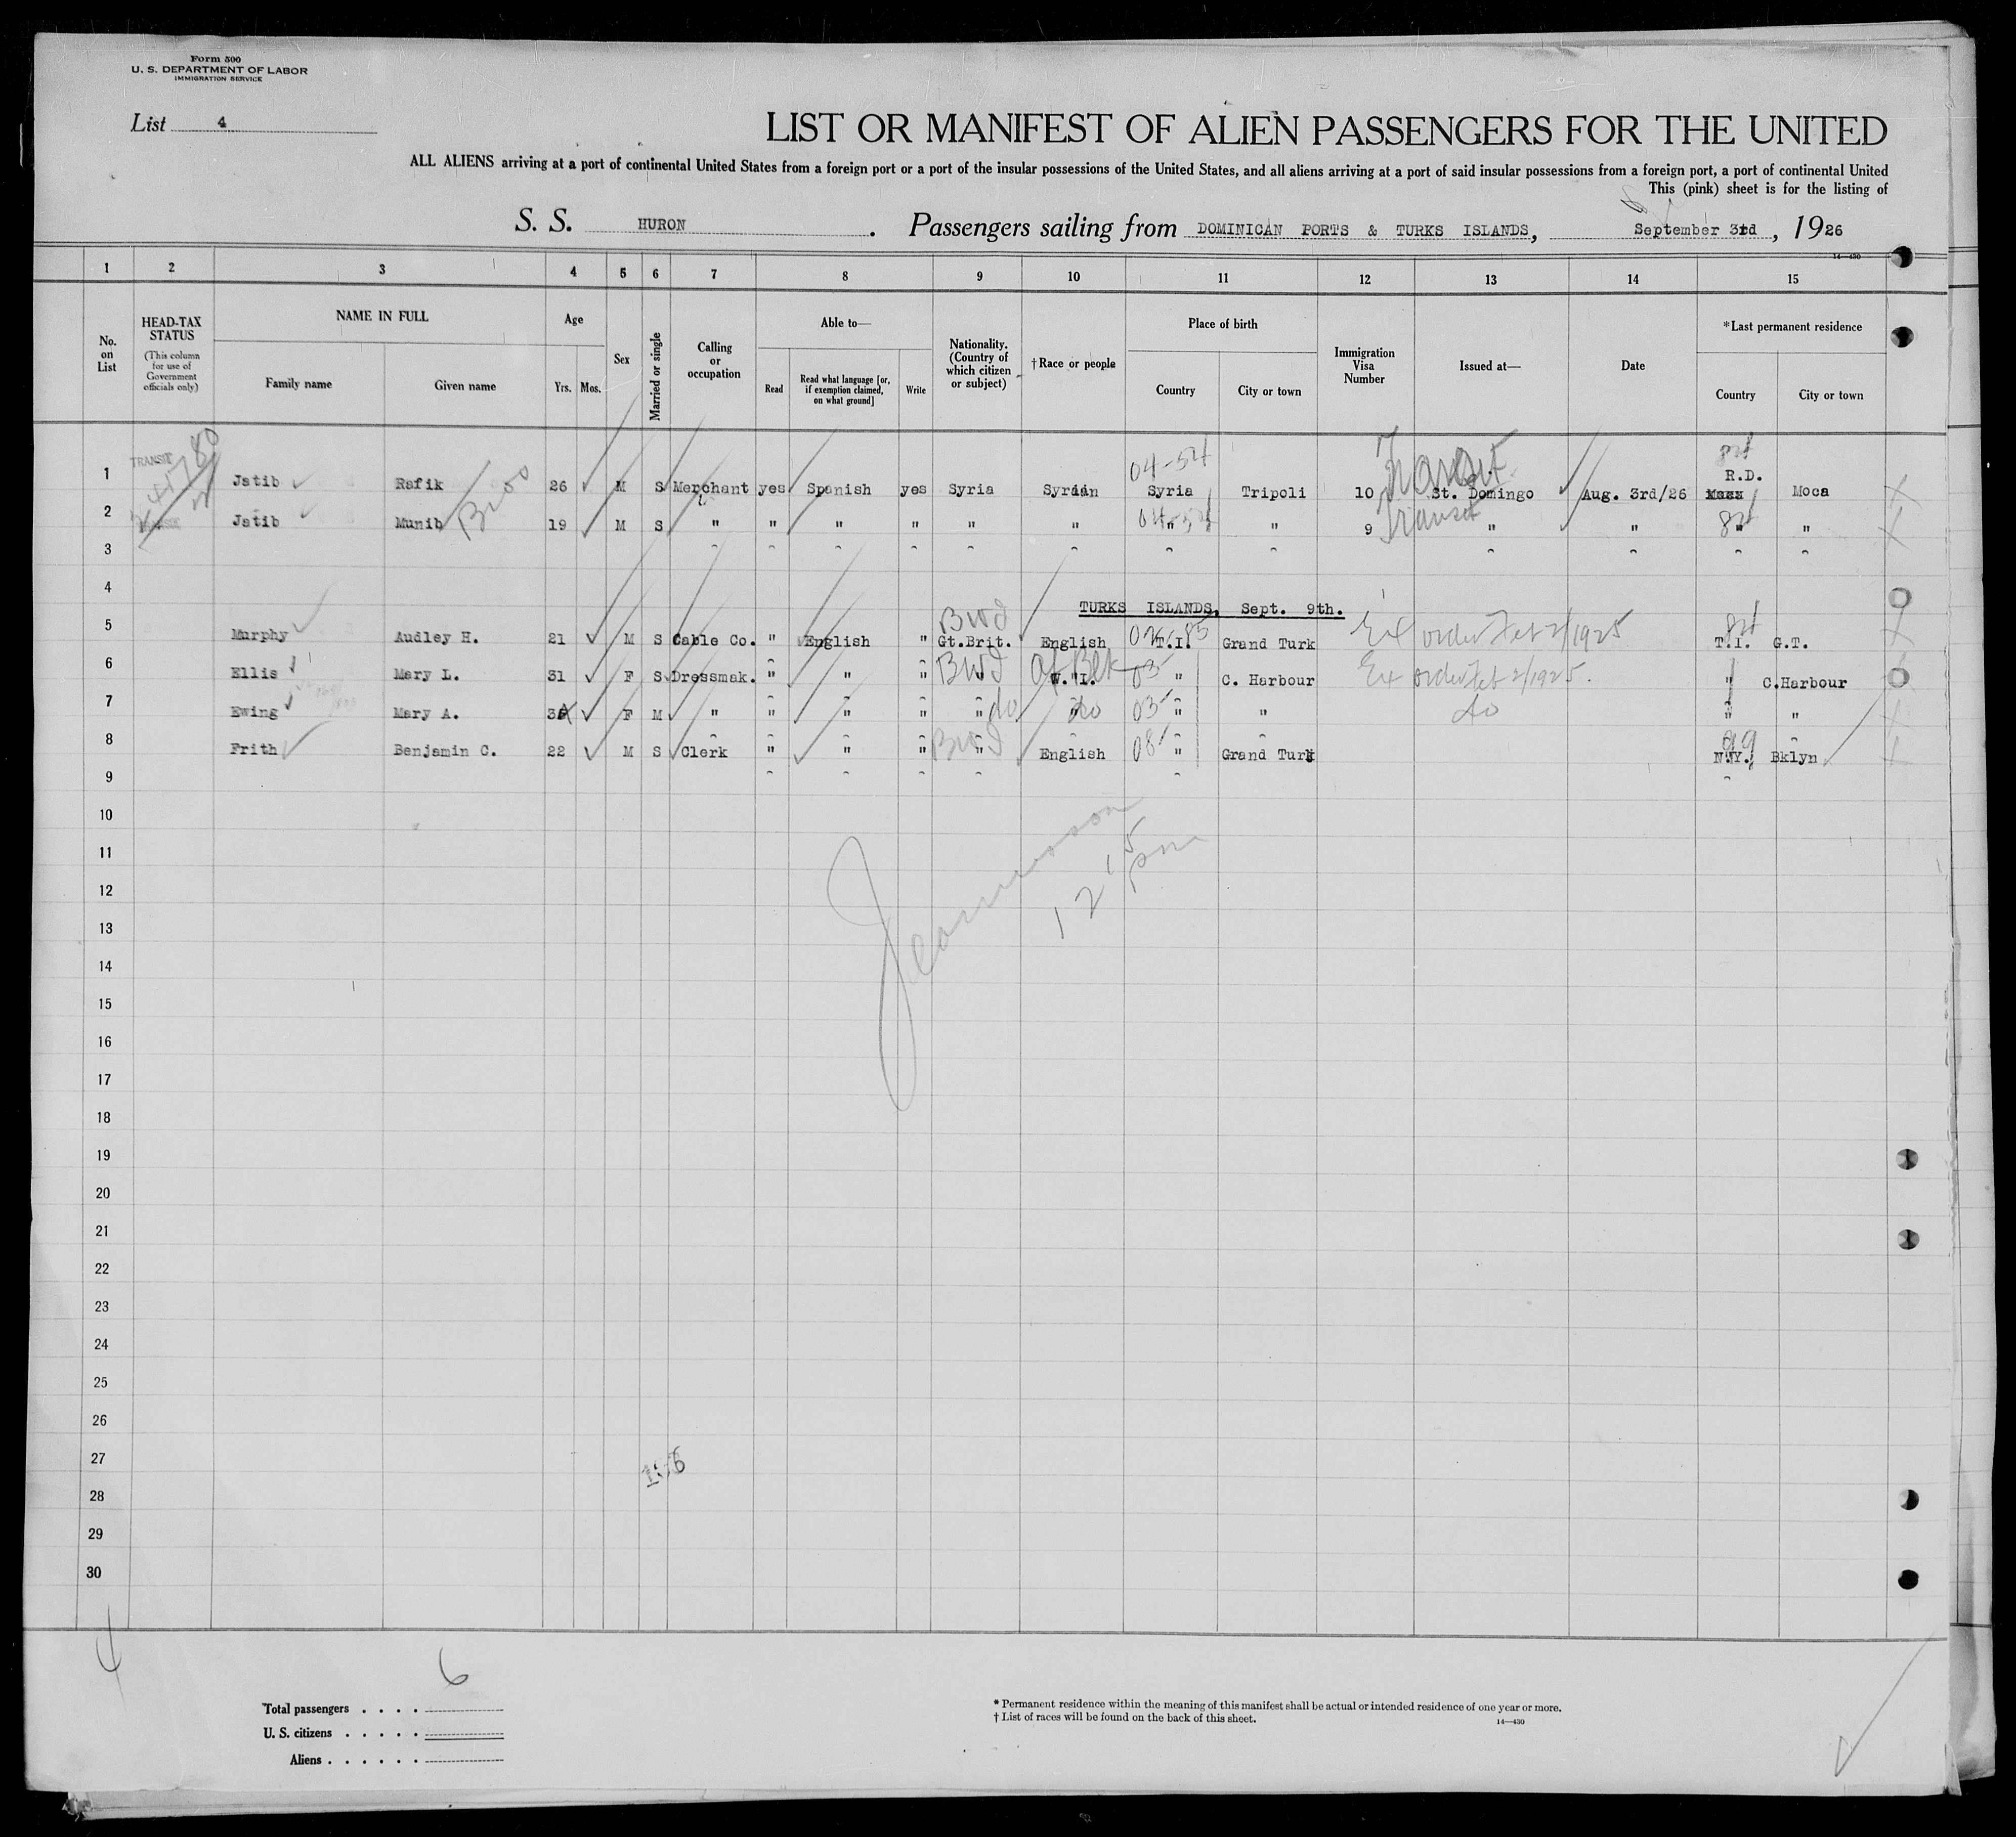 Form 500
U. S. DEPARTMENT OF LABOR
IMMIGRATION SERVICE
List 4
LIST OR MANIFEST OF ALIEN PASSENGERS FOR THE UNITED
ALL ALIENS arriving at a port of continental United States from a foreign port or a port of the insular possessions of the United States, and all aliens arriving at a port of said insular possessions from a foreign port, a port of continental United
This (pink) sheet is for the listing of
S. S. HURON. Passengers sailing from DOMINICAN PORTS & TURKS ISLANDS, September 3rd, 1926
14—430
1 2 3 4 5 6 7 8 9 10 11 12 13 14 15
No. on List
HEAD-TAX STATUS (This column for use of Government officials only)
NAME IN FULL
Family name Given name
Age
Yrs. Mos.
Sex
Married or single
Calling or occupation
Able to—
Read
Read what language [or, if exemption claimed, on what ground]
Write
Nationality. (Country of which citizen or subject)
†Race or people
Place of birth
Country City or town
Immigration Visa Number
Issued at—
Date
*Last permanent residence
Country City or town
1 TRANSIT Jatib Rafik 26 M S Merchant yes Spanish yes Syria Syrian 04-54 Syria Tripoli 10 Transit St. Domingo Aug. 3rd/26 R.D. Moca
2 Jatib Munib 19 M S " " " " " " 04-54 " " 9 Transit " " " "
3
4 TURKS ISLANDS, Sept. 9th.
5 Murphy Audley H. 21 M S Cable Co. " English " Gt.Brit. English T.I. Grand Turk Ex order Feb 2/1925 T.I. G.T.
6 Ellis Mary L. 31 F S Dressmak. " " " " Af Blk W. I. 03 " C. Harbour Ex order Feb 2/1925. " C.Harbour
7 Ewing Mary A. F M " " " " " do do 03 " " do " "
8 Frith Benjamin C. 22 M S Clerk " " " " English " Grand Turk 99 N.Y. Bklyn
9
10
11
12
13
14
15
16
17
18
19
20
21
22
23
24
25
26
27
28
29
30
12 15 pm
4
6
Total passengers . . . .
U. S. citizens . . . . .
Aliens . . . . . .
* Permanent residence within the meaning of this manifest shall be actual or intended residence of one year or more.
† List of races will be found on the back of this sheet.
14—430